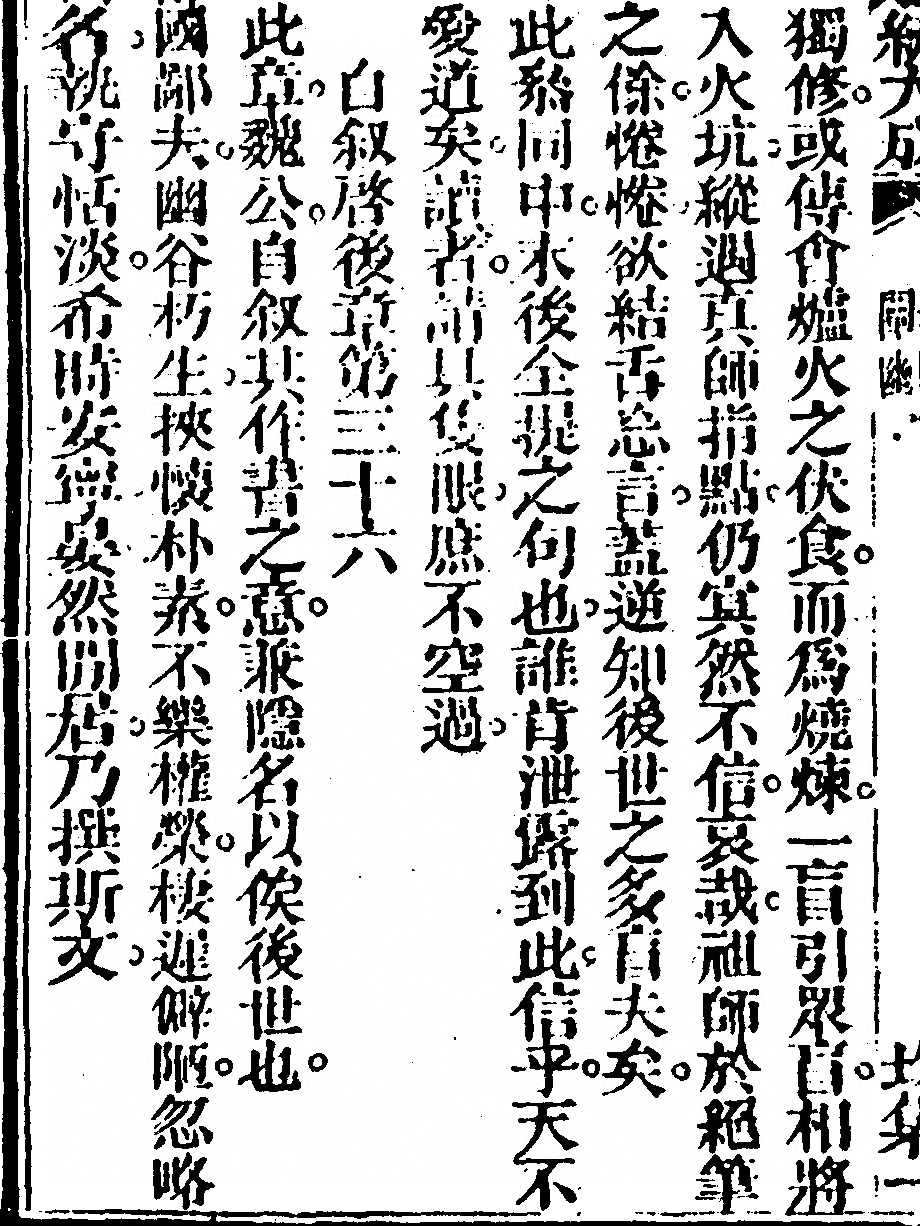 獨修或傳會爐火之伏食而爲燒煉一盲引眾盲相將
入火坑縱遇真師指點仍寞然不信哀哉祖師於絕筆
之餘惓惓欲結舌忘言蓋逆知後世之多盲夫矣
此叅同中末後全提之句也誰肯泄露到此信乎天不
愛道矣讀者請具隻眼庶不空過
自叙啓後章第三十六
此章魏公自叙其作書之意兼隱名以俟後世也
國鄙夫幽谷朽生挾懷朴素不樂權榮棲遲僻陋忽略
名執守恬淡希時安寧晏然閒居乃撰斯文
闡幽